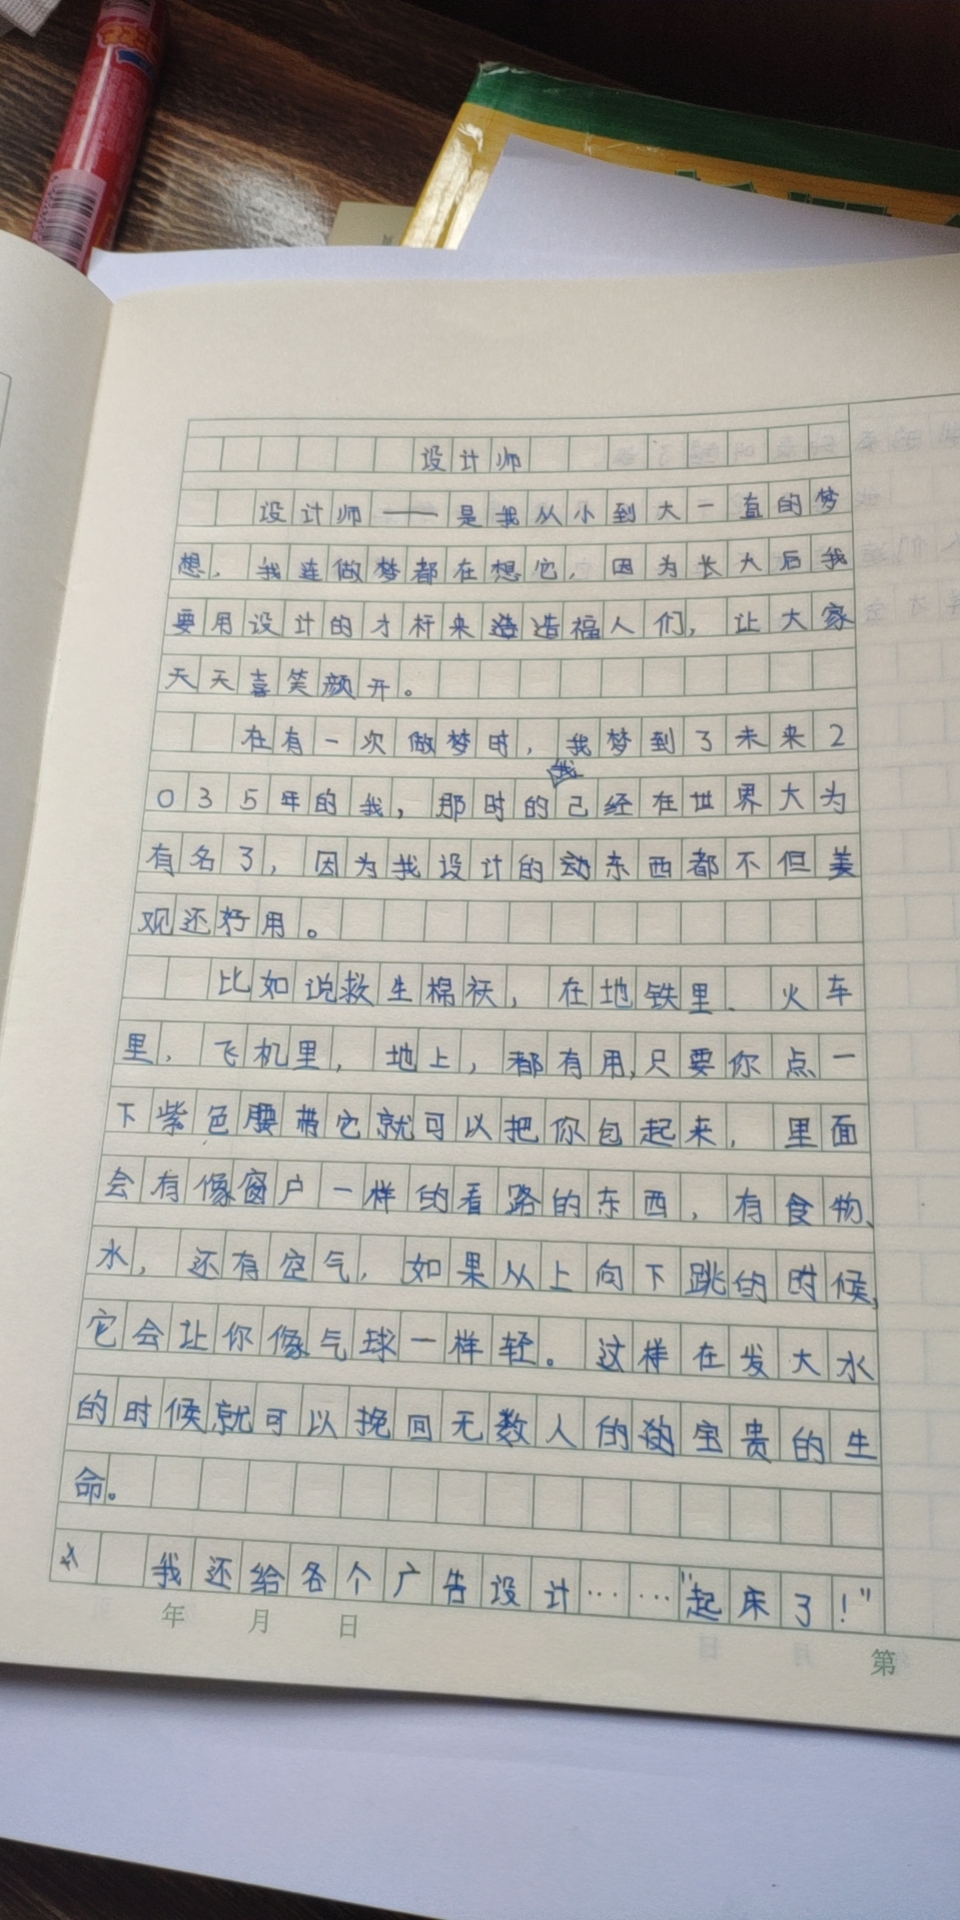 设计师
设计师——是我从小到大一直的梦
想，我连做梦都在想它，因为长大后我
要用设计的才杆来造福人们，让大家
天天喜笑颜开。
在有一次做梦时，我梦到了未来2
035年的我，那时的我己经在世界大为
有名了，因为我设计的东西都不但美
观还好用。
比如说救生棉袄，在地铁里、火车
里，飞机里，地上，都有用，只要你点一
下紫色腰带它就可以把你包起来，里面
会有像窗户一样的看路的东西，有食物、
水，还有空气，如果从上向下跳的时候，
它会让你像气球一样轻。这样在发大水
的时候就可以挽回无数人的宝贵的生
命。
我还给各个广告设计……"起床了！"
年 月 日
第